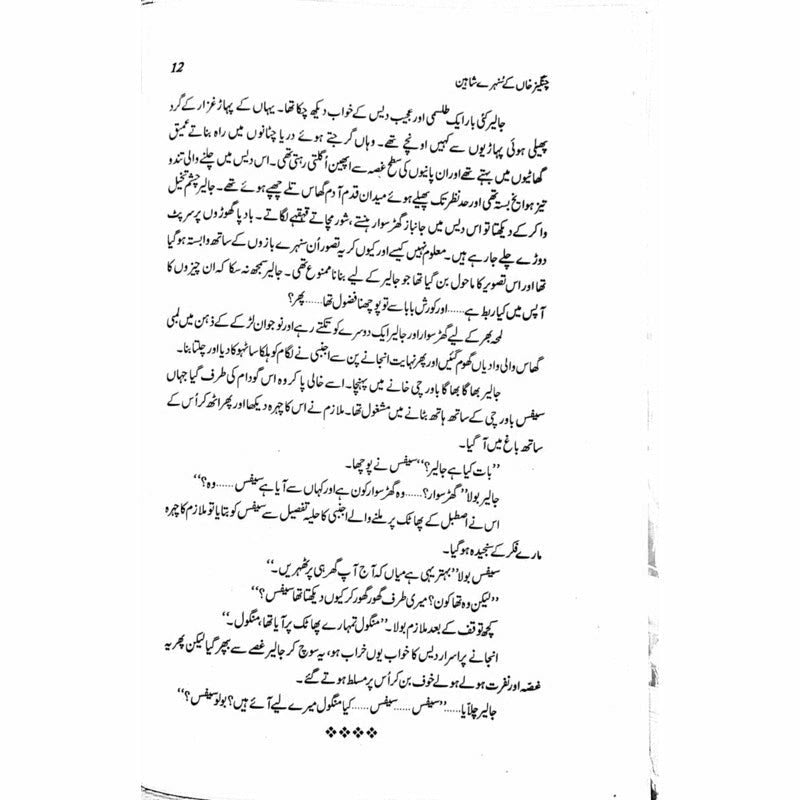 12
چنگیز خاں کے سُنہرے شاہین
جالیر کئی بار ایک طلسمی اور عجیب دیس کے خواب دیکھ چکا تھا۔ یہاں کے پہاڑ غزار کے گرد
پھیلی ہوئی پہاڑیوں سے کہیں اونچے تھے۔ وہاں گرجتے ہوئے دریا چٹانوں میں راہ بناتے عمیق
گھاٹیوں میں بہتے تھے اور ان پانیوں کی سطح غصہ سے اپھین اُگلتی رہتی تھی۔ اس دیس میں چلنے والی تند و
تیز ہوا یخ بستہ تھی اور حد نظر تک پھیلے ہوئے میدان قدم آدم گھاس تلے چھپے ہوئے تھے۔ جالیر چشم تخیل
وا کر کے دیکھتا تو اس دیس میں جانباز گھڑ سوار ہنستے، شور مچاتے قہقہے لگاتے۔ باد پا گھوڑوں پر سرپٹ
دوڑے چلے جا رہے ہیں۔ معلوم نہیں کیسے اور کیوں کر یہ تصور اُن سنہرے بازوں کے ساتھ وابستہ ہو گیا
تھا اور اس تصویر کا ماحول بن گیا تھا جو جالیر کے لیے بنانا ممنوع تھی۔ جالیر سمجھ نہ سکا کہ ان چیزوں کا
آپس میں کیا ربط ہے......اور کورش بابا سے تو پوچھنا فضول تھا......پھر؟
لمحہ بھر کے لیے گھڑ سوار اور جالیر ایک دوسرے کو تکتے رہے اور نوجوان لڑکے کے ذہن میں لمبی
گھاس والی وادیاں گھوم گئیں اور پھر نہایت انجانے پن سے اجنبی نے لگام کو ہلکا سا ٹہوکا دیا اور چلتا بنا۔
جالیر بھاگا بھاگا باورچی خانے میں پہنچا۔ اسے خالی پا کر وہ اس گودام کی طرف گیا جہاں
سیفس باورچی کے ساتھ ہاتھ بٹانے میں مشغول تھا۔ ملازم نے اس کا چہرہ دیکھا اور پھر اٹھ کر اُس کے
ساتھ باغ میں آ گیا۔
”بات کیا ہے جالیر؟“ سیفس نے پوچھا۔
جالیر بولا ”گھڑ سوار؟......وہ گھڑ سوار کون ہے اور کہاں سے آیا ہے سیفس......وہ؟“
اس نے اصطبل کے پھاٹک پر ملنے والے اجنبی کا حلیہ تفصیل سے سیفس کو بتایا تو ملازم کا چہرہ
مارے فکر کے سنجیدہ ہو گیا۔
سیفس بولا ”بہتر یہی ہے میاں کہ آج آپ گھر ہی پر ٹھہریں۔“
”لیکن وہ تھا کون؟ میری طرف گھور گھور کر کیوں دیکھتا تھا سیفس؟“
کچھ توقف کے بعد ملازم بولا۔ ”منگول تمہارے پھاٹک پر آیا تھا، منگول۔“
انجانے پر اسرار دیس کا خواب یوں خراب ہو، یہ سوچ کر جالیر غصے سے بپھر گیا لیکن پھر یہ
غصّہ اور نفرت ہولے ہولے خوف بن کر اُس پر مسلط ہوتے گئے۔
جالیر چلاّیا.....”سیفس......سیفس......کیا منگول میرے لیے آئے ہیں؟ بولو سیفس؟“